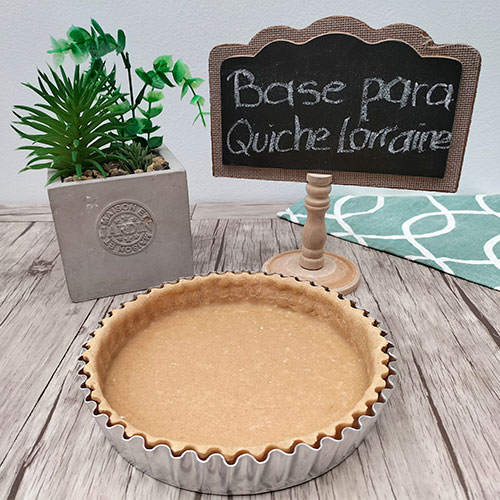 Base para
Quiche Lorraine
MAISON ET